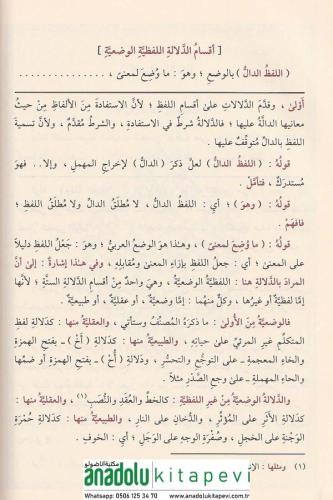 [ أقسامُ الدَّلالةِ اللفظيَّةِ الوضعيَّةِ ]
( اللفظُ الدالُّ ) بالوضعِ ؛ وهوَ : ما وُضِعَ لمعنىً ، . . . . . . . . . . . . . . .
أَوْلىٰ ، وقدَّمَ الدَّلالاتِ علىٰ أقسامِ اللفظِ ؛ لأنَّ الاستفادةَ مِنَ الألفاظِ مِنْ حيثُ
معانيها الدالَّةُ عليها ؛ فالدَّلالةُ شرطٌ في الاستفادةِ ، والشرطُ مُقدَّمٌ ، ولأنَّ تسميةَ
اللفظِ بالدالِّ مُتوقِّفٌ عليها .
قولُهُ : ( اللفظُ الدالُّ ) لعلَّ ذكرَ ( الدالُّ ) لإخراجِ المهملِ ، وإلا.. فهوَ
مُستدرَكٌ ، فتأمَّلْ .
قولُهُ : ( وهوَ ) ؛ أي : اللفظُ الدالُّ ، لا مُطلَقُ الدالِّ ولا مُطلَقُ اللفظِ ؛
فافهمْ .
قولُهُ : ( ما وُضِعَ لمعنىً ) ، وهـٰذا هوَ الوضعُ العربيُّ ؛ وهوَ : جَعْلُ اللفظِ دليلاً
على المعنىٰ ؛ أي : جعلُ اللفظِ بإزاءِ المعنىٰ ومُقابلِهِ ، وفي هـٰذا إشارةٌ : إلىٰ أنَّ
المرادَ بالدَّلالةِ هنا : اللفظيَّةُ الوضعيَّةُ ، وهيَ واحدٌ مِنْ أقسامِ الدَّلالةِ الستَّةِ ؛ لأنَّها
إمَّا لفظيَّةٌ أو غيرُها ، وكلٌّ منهُما : إمَّا وضعيَّةٌ ، أو عقليَّةٌ ، أو طبيعيَّةٌ .
فالوضعيَّةُ مِنَ الأُولىٰ : ما ذكرَهُ المُصنِّفُ وستأتي ، والعقليَّةُ منها : كدَلالةِ لفظِ
المتكلِّمِ غيرِ المرئيِّ علىٰ حياتِهِ ، والطبيعيَّةُ منها : كدَلالةِ ( أخ ) ـ بفتحِ الهمزةِ
والخاءِ المعجمةِ ـ على التوجُّعِ والتحسُّرِ ، ودَلالةِ ( أُح ) ـ بفتحِ الهمزةِ أو ضمِّها
والحاءِ المهملةِ ـ علىٰ وجعِ الصَّدْرِ مثلاً .
والدَّلالةُ الوضعيَّةُ مِنْ غيرِ اللفظيَّةِ : كالخطِّ والعُقَدِ والنُّصُبِ (١) ، والعقليَّةُ منها :
كدَلالةِ الأثرِ على المُؤثِّرِ ، والدُّخانِ على النارِ ، والطبيعيَّةُ منها : كدَلالةِ حُمْرَةِ
الوَجْنةِ على الخجلِ ، وصُفْرةِ الوجهِ على الوَجَلِ ؛ أي : الخوفِ .
(١) ومثلها : الإ
مكتبة اناضولو
anadolu kitapevi
Whatsapp: 0506 125 34 70 www.anadolukitapevi.com